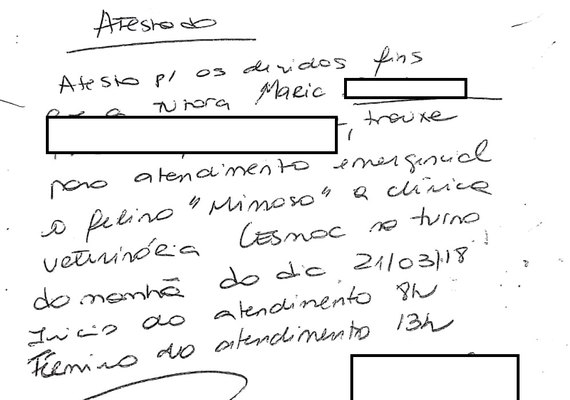 Atestado
Atesto p/ os devidos fins
que a tutora Maria
, trouxe
para atendimento emergencial
o felino "Mimoso" a clínica
veterinária CESMAC no turno
da manhã do dia 21/03/18
Início do atendimento 8h
Término do atendimento 13h